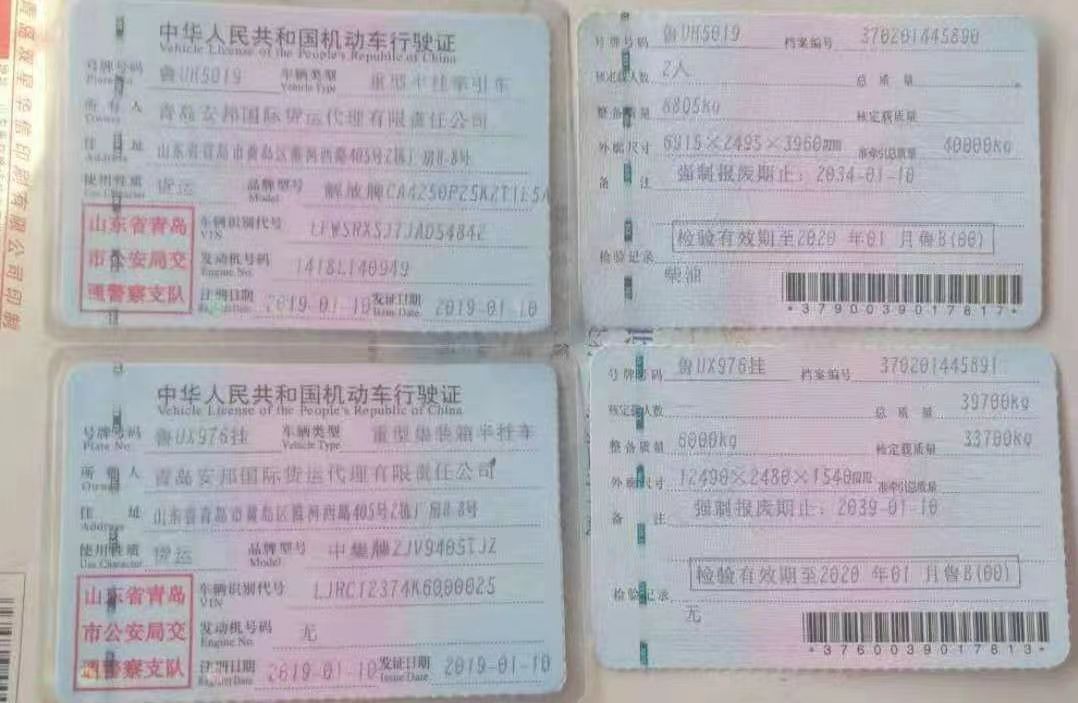 中华人民共和国机动车行驶证
Vehicle License of the People's Republic of China
号牌号码 鲁UH5019 车辆类型 重型半挂牵引车
Plate No. Vehicle Type
所有人 青岛安邦国际货运代理有限责任公司
Owner
住址
Address 山东省青岛市黄岛区 河西路405号2栋厂房8-8号
使用性质 货运 品牌型号 解放牌CA4250P25K2T1E5A
Use Character Model
山东省青岛
市公安局交
通警察支队
车辆识别代号
VIN LFWSRXSJ7JAD54842
发动机号码 1418L140949
Engine No.
注册日期 2019-01-10 发证日期 2019-01-10
Register Date Issue Date
号牌号码 鲁UH5019 档案编号 370201445890
核定载人数 2人 总质量
整备质量 8805kg 核定载质量
外廓尺寸 6915×2495×3960mm 准牵引总质量 40000kg
备注 强制报废期止：2034-01-10
检验有效期至2020 年01 月鲁B(00)
检验记录
柴油
*3790039017817*
中华人民共和国机动车行驶证
Vehicle License of the People's Republic of China
号牌号码 鲁UX976挂 车辆类型 重型集装箱半挂车
Plate No. Vehicle Type
所有人 青岛安邦国际货运代理有限责任公司
Owner
住址
Address 山东省青岛市黄岛区 河西路405号2栋厂房8-8号
使用性质 货运 品牌型号 中集牌ZJV9405TJZ
Use Character Model
山东省青岛
市公安局交
通警察支队
车辆识别代号 LJRC12374K6000025
VIN
发动机号码 无
Engine No.
注册日期 2019-01-10 发证日期 2019-01-10
Register Date Issue Date
号牌号码 鲁UX976挂 档案编号 370201445891
核定载人数 总质量 39700kg
整备质量 6000kg 核定载质量 33700kg
外廓尺寸 12490×2480×1540mm 准牵引总质量
备注 强制报废期止：2039-01-10
检验有效期至2020 年01 月鲁B(00)
检验记录
无
*3760039017813*